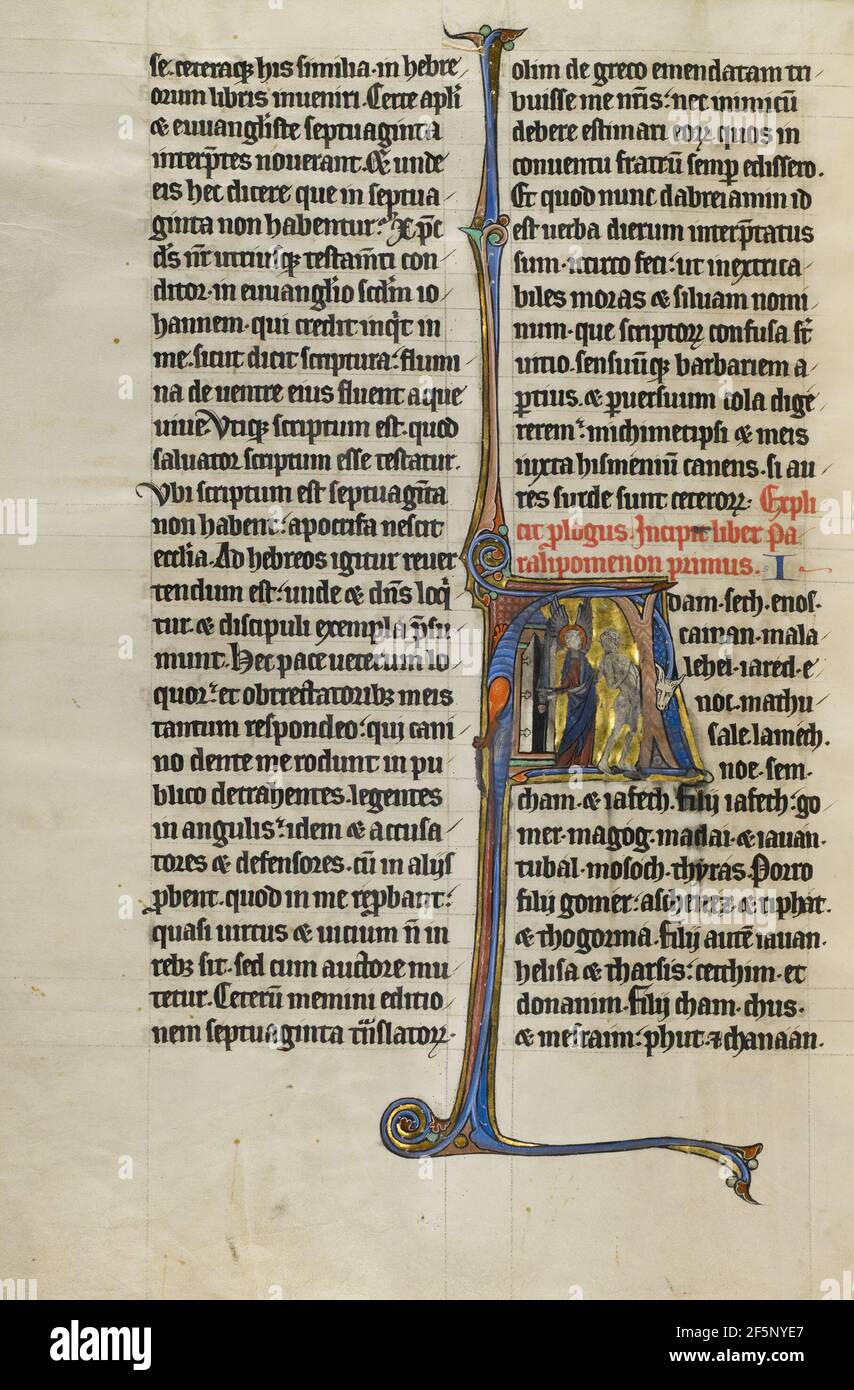 se. ceteraq; his similia. in hebre
orum libris inueniri. Certe apl'i
& euuangliste septuaginta
interp̃tes nouerant. Et unde
eis hec dicere que in septua
ginta non habentur? Xp̃c
dς nr̃ utriusq; testam̃ti con
ditor. in euuanglio scd̃m io
hannem. qui credit inq̃t in
me. sicut dicit scriptura: flumi
na de uentre eius fluent aque
uiue. Vtiq; scriptum est. quod
saluator scriptum esse testatur.
Vbi scriptum est septuagĩta
non habent: apocrifa nescit
eccl'ia. Ad hebreos igitur reuer
tendum est: unde & dñs loq̃
tur. & discipuli exempla p̃su
munt. Hec pace ueterum lo
quor: et obtrectatorib; meis
tantum respondeo: qui cani
no dente me rodunt in pu
blico detrahentes. legentes
in angulis: idem & accusa
tores & defensores. cũ in alijs
ꝓbent. quod in me rep̱bant:
quasi uirtus & uicium ñ in
reb; sit. sed cum auctore mu
tetur. Ceterũ memini editio
nem septuaginta t̃nslatoꝝ.
olim de greco emendatam tri
buisse me nr̃is: nec inimicũ
debere estimari eoꝝ quos in
conuentu fratrũ semꝑ edissero.
Et quod nunc dabreiamin id
est uerba dierum interp̃tatus
sum. iccirco feci: ut inextrica
biles moras & siluam nomi
num. que scriptoꝝ confusa st̃
uitio. sensuũq; barbariem a
ꝑtius. & ꝑ uersuum cola dige
rerem: michimetipsi & meis
iuxta hismeniũ canens. si au
res surde sunt ceteroꝝ. Expli
cit p̃logus. Incipit liber Pa
ralipomenon primus. I
Adam. seth. enos.
cainan. mala
lehel. iared. e
noc. mathu
sale. lamech.
noe. sem.
cham. & iafech. filij iafech: go
mer. magog. madai. & iauan.
tubal. mosoch. thyras. Porro
filij gomer: aschenez. & riphat.
& thogorma. filij autẽ iauan.
helisa & tharsis: cetthim. et
donanim. filij cham. chus.
& mesraim: phut. ⁊ chanaan.
alamy
Image ID: 2F5NYE7
www.alamy.com